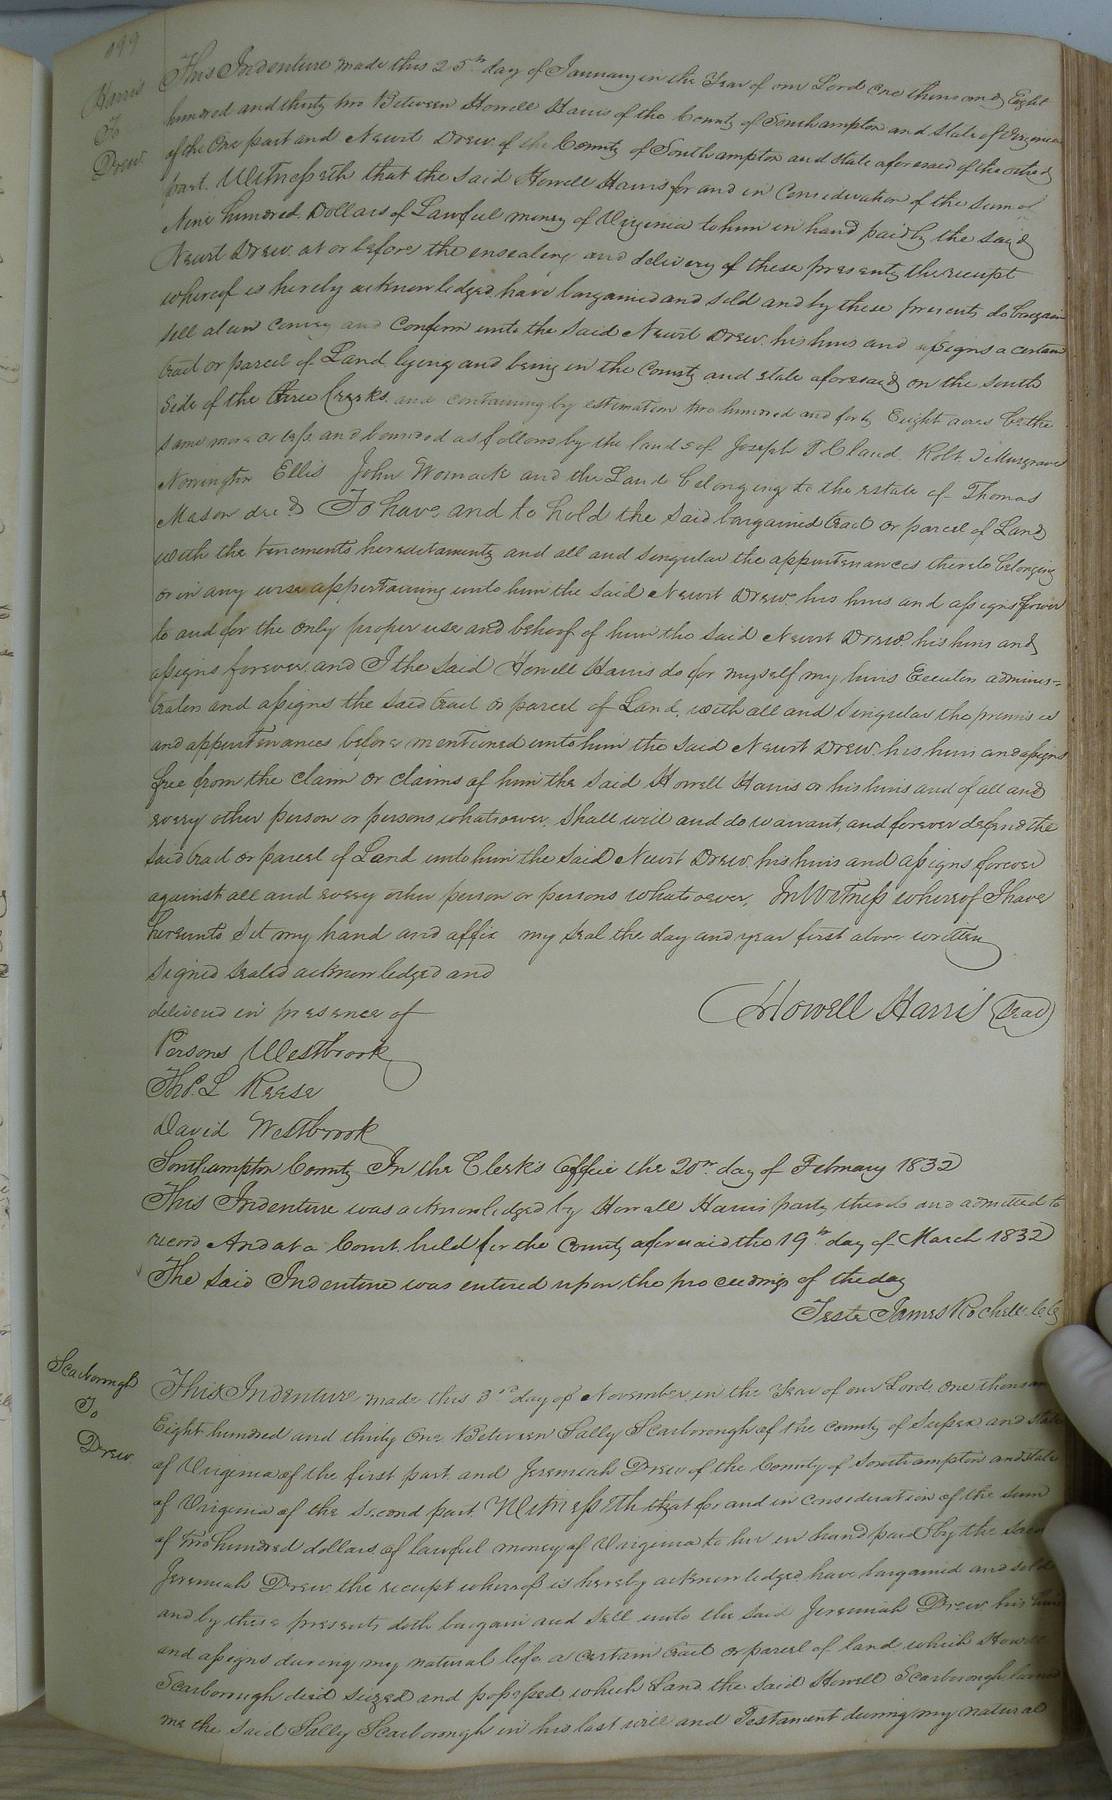 199
Harris
To
Drew
This Indenture made this 25th day of January in the Year of our Lord One thousand Eight
hundred and thirty two Between Howell Harris of the County of Southampton and State of Virginia
of the One part and Newit Drew of the County of Southampton and state aforesaid of the other
part. Witnesseth that the said Howell Harris for and in Consideration of the sum of
Nine hundred Dollars of Lawful money of Virginia to him in hand paid by the said
Newit Drew at or before the ensealing and delivery of these presents, the receipt
whereof is hereby acknowledged, have bargained and sold and by these presents do bargain
sell alien convey and Confirm unto the said Newit Drew his heirs and assigns a certain
tract or parcel of Land lying and being in the County and state aforesaid on the south
side of the three Creeks and containing by estimation two hundred and forty Eight acres be the
same more or less and bounded as follows by the lands of Joseph T Claud Robt. J Musgrave
Norvington Ellis John Womack and the Land belonging to the estate of Thomas
Mason decd To have and to hold the said bargained tract or parcel of Land
with the tenements hereditaments and all and singular the appurtenances thereto belonging
or in any wise appertaining unto him the said Newit Drew his heirs and assigns forever
to and for the only proper use and behoof of him the said Newit Drew his heirs and
assigns forever, and I the said Howell Harris do for myself my heirs Executors adminis=
trators and assigns the said tract or parcel of Land, with all and singular the premises
and appurtenances before mentioned unto him the said Newit Drew his heirs and assigns
free from the claim or claims of him the said Howell Harris or his heirs and of all and
every other person or persons whatsoever, shall will and do warrant and forever defend the
said tract or parcel of Land unto him the said Newit Drew his heirs and assigns forever
against all and every other person or persons whatsoever, In Witness whereof I have
hereunto set my hand and affix my seal the day and year first above written
Signed sealed acknowledged and
delivered in presence of
Howell Harris (Seal)
Persons Westbrook
Thos. L Reese
David Westbrook
Southampton County In the Clerk's Office the 20th day of February 1832
This Indenture was acknowledged by Howell Harris party thereto and admitted to
record And at a Court held for the County aforesaid the 19th day of March 1832
The said Indenture was entered upon the proceedings of the day
Teste James Rochelle
Scarborough
To
Drew
This Indenture made this 3rd day of November in the Year of our Lord One thousand
Eight hundred and thirty One Between Sally Scarborough of the county of Sussex and state
of Virginia of the first part and Jeremiah Drew of the County of Southampton and state
of Virginia of the second part, Witnesseth that for and in consideration of the sum
of two hundred dollars of lawful money of Virginia to her in hand paid by the said
Jeremiah Drew the receipt whereof is hereby acknowledged, have bargained and sold
and by these presents doth bargain and sell unto the said Jeremiah Drew his heirs
and assigns during my natural life a certain tract or parcel of land which Howell
Scarborough died seized and possessed which Land the said Howell Scarborough loaned
me the said Sally Scarborough in his last will and Testament during my natural